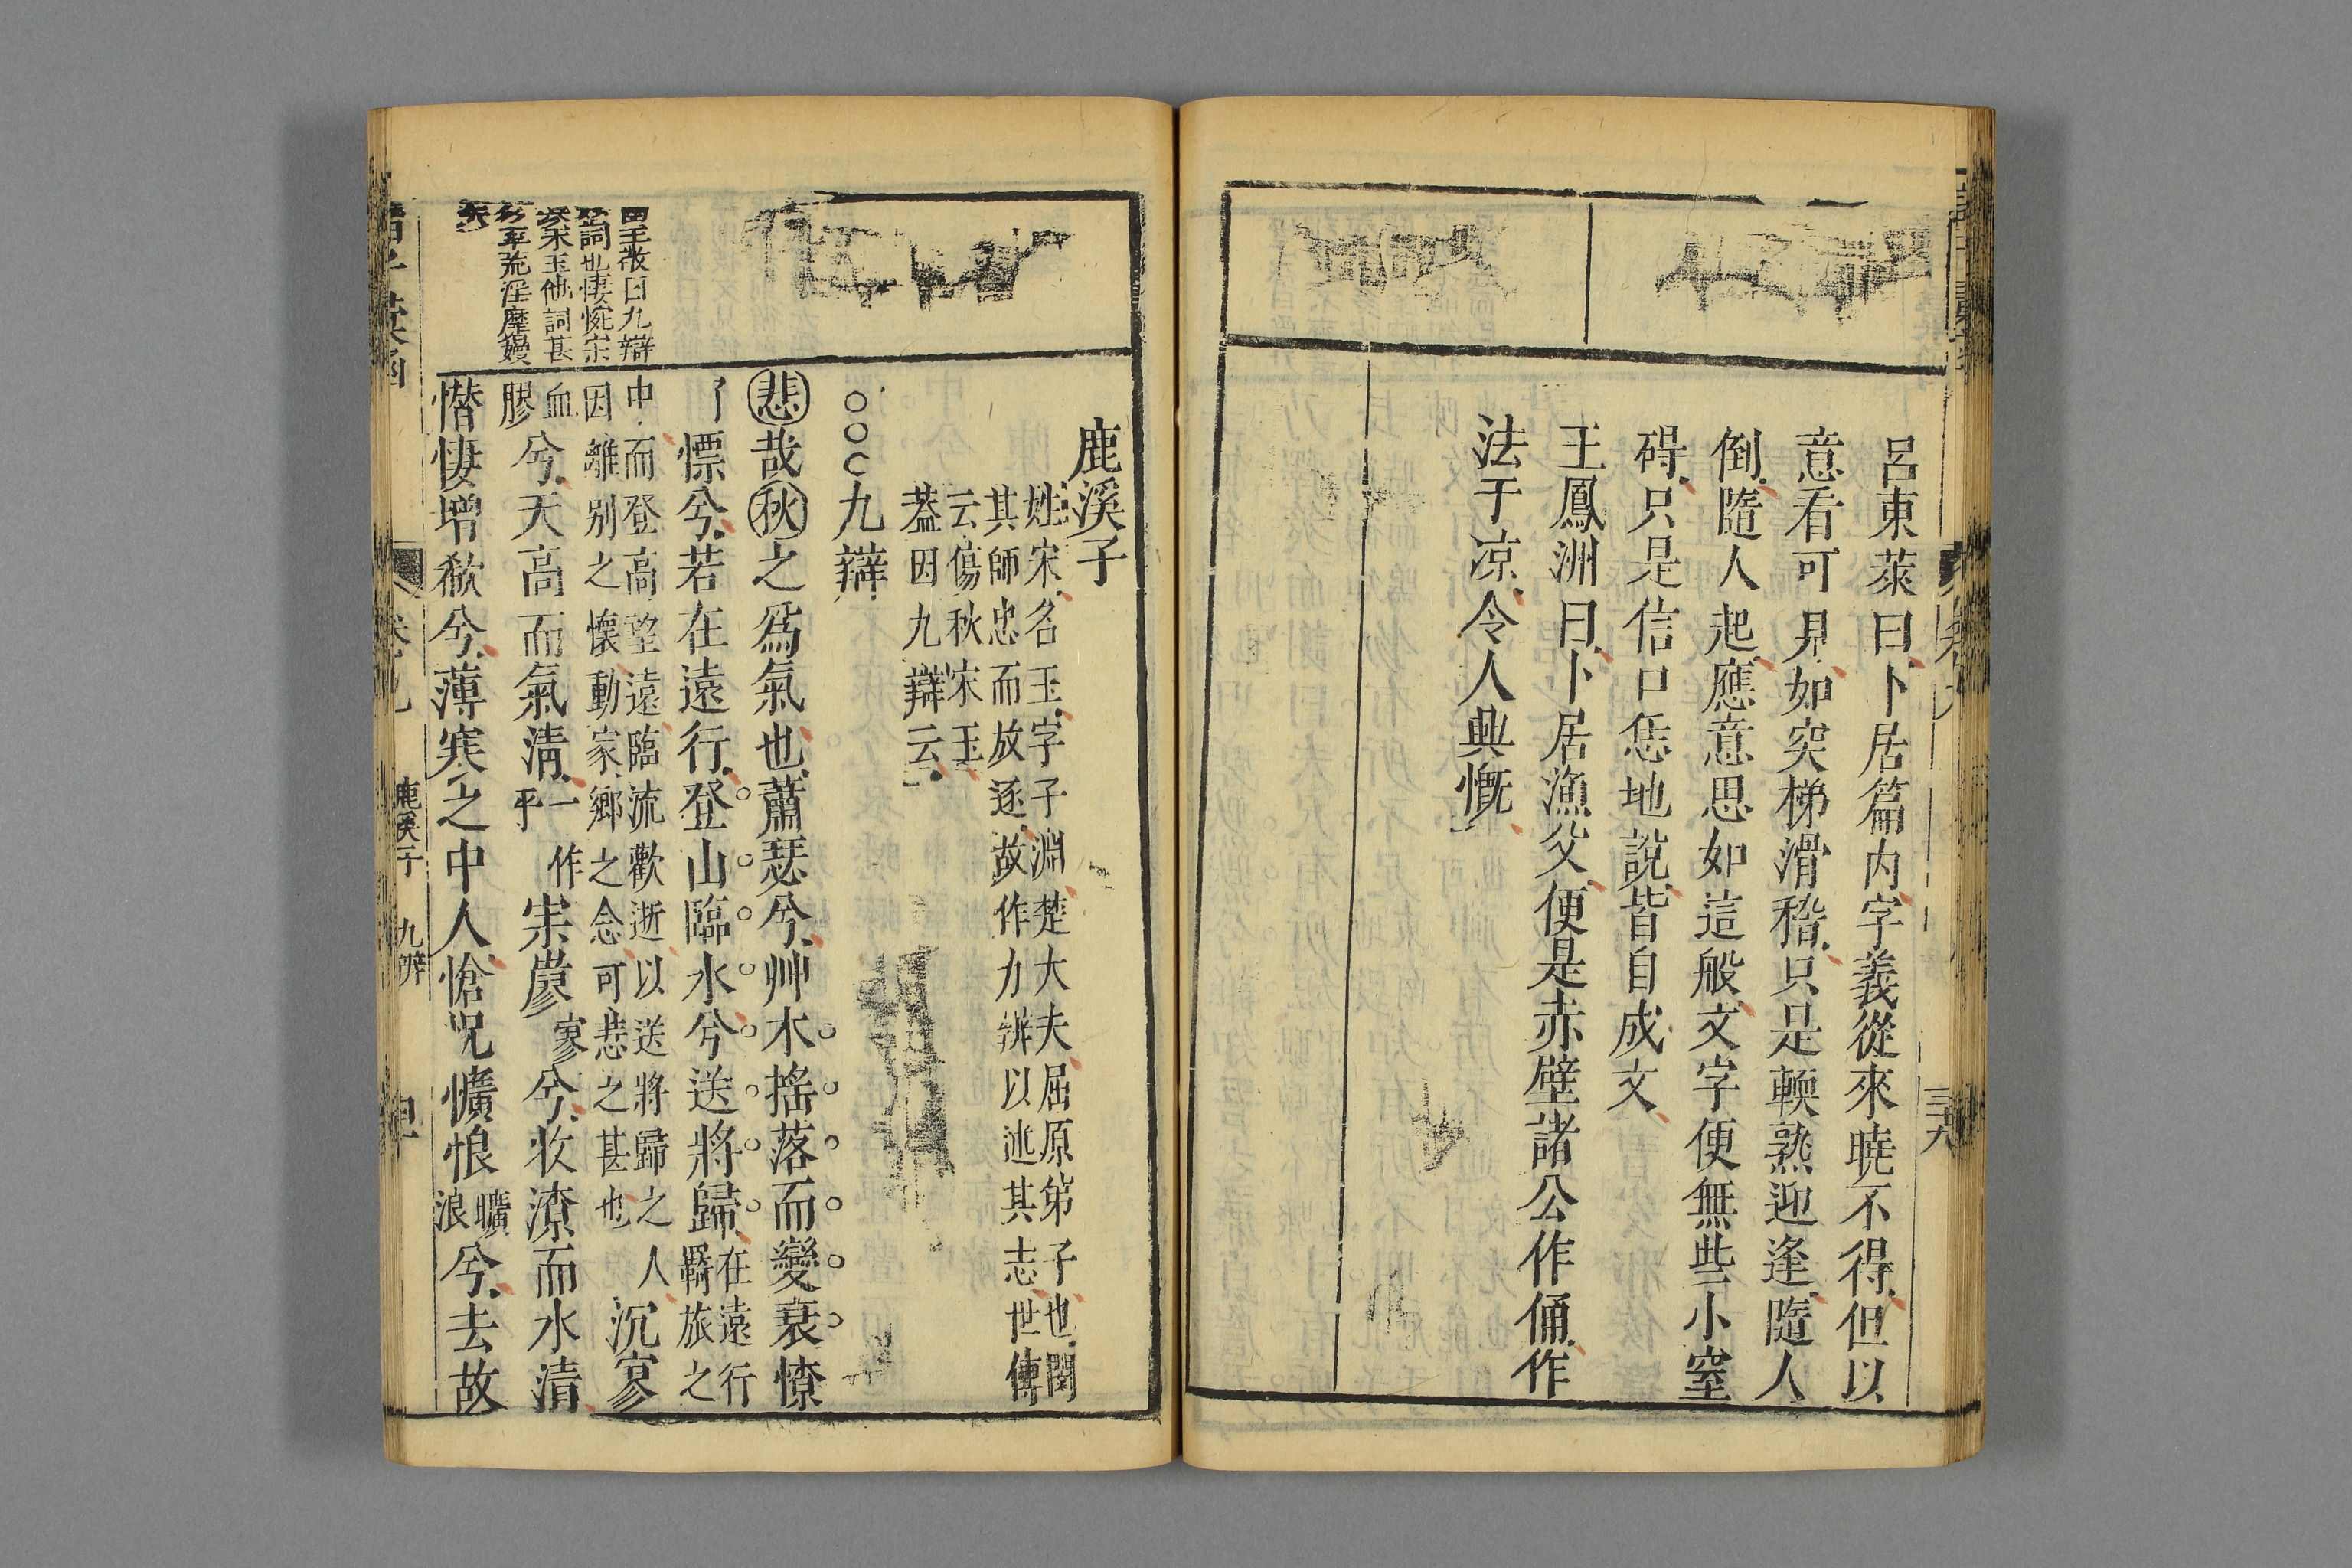 呂東萊曰卜居篇内字義從來曉不得但以
意看可見如突梯滑稽只是輭熟迎逢隨人
倒隨人起應意思如這般文字便無些小窒
碍只是信口恁地說皆自成文
王鳳洲曰卜居漁父便是赤壁諸公作俑作
法于凉令人興慨
三九
鹿溪子
姓宋名玉字子淵楚大夫屈原弟子也閔
其師忠而放逐故作力辨以述其志世傳
云傷秋宋玉
葢因九辯云
○○○九辯
悲哉秋之爲氣也蕭瑟兮艸木搖落而變衰憭
了慄兮若在遠行登山臨水兮送將歸
在遠行
羇旅之
中而登高望遠臨流歡逝以送將歸之人
因離别之懷動家鄉之念可悲之甚也
沉寥
血
膠
兮天高而氣清
一作
平
宋廖寥兮收潦而水清
憯悽增欷兮薄寒之中人愴怳懭悢
曠
浪
兮去故
曰九辯
詞也悽惋宋
宋玉他詞甚
荒淫靡嫚
鹿溪子 九辨